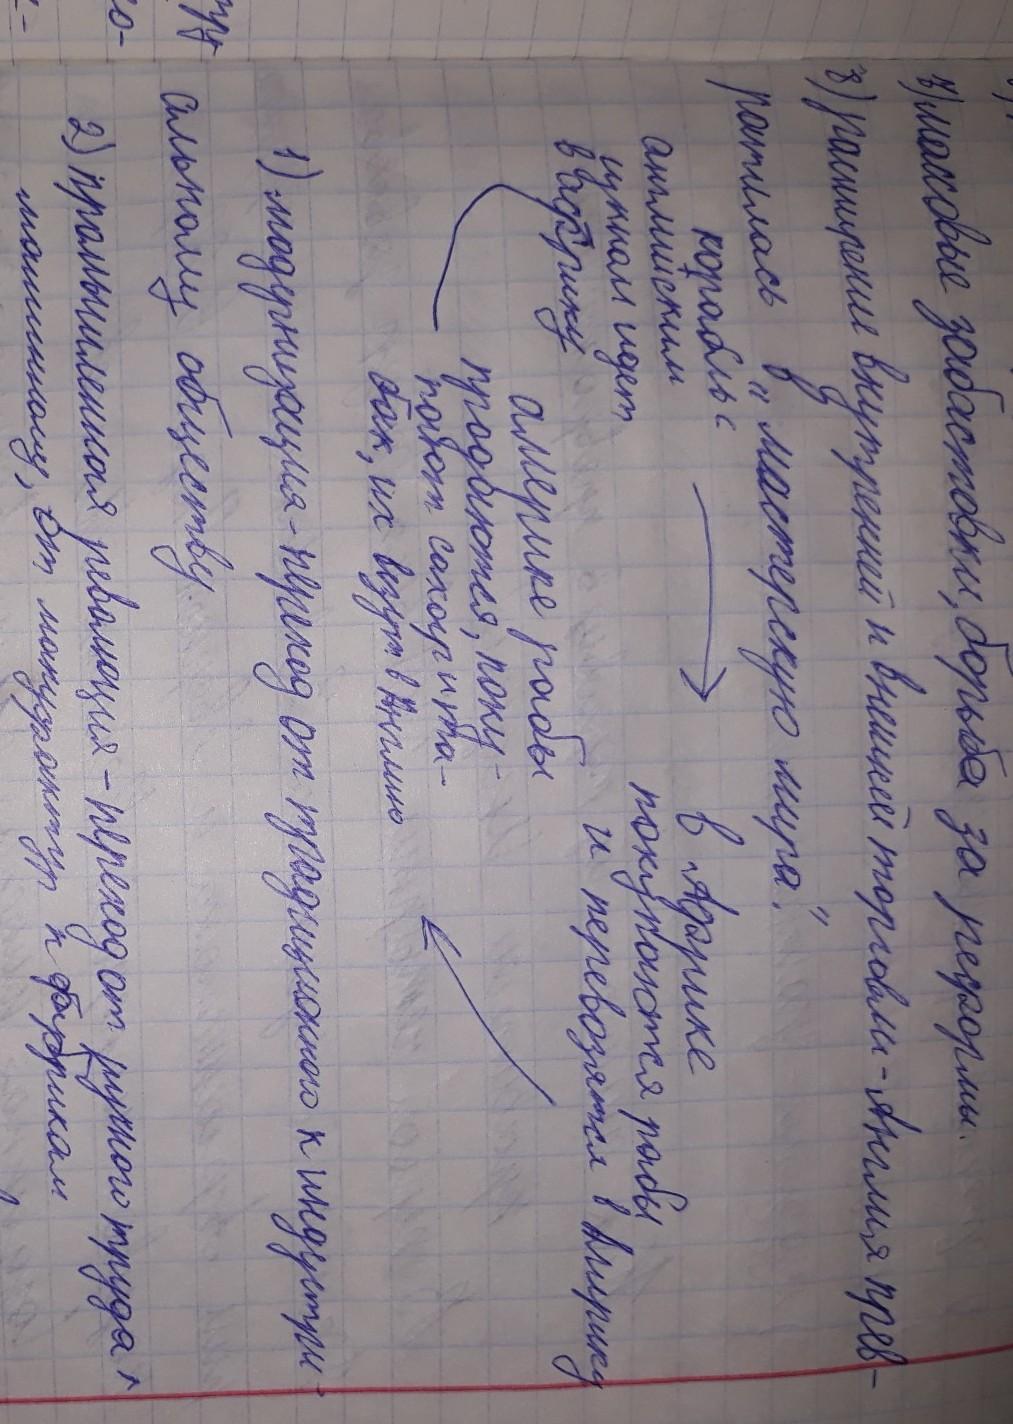 7) массовые забастовки, борьба за реформы.
8) расширение внутренней и внешней торговли - Англия прев-
ратилась в "мастерскую мира".
корабль с
английским
сукном идет
в Африку
в Африке
покупаются рабы
и перевозятся в Америку
америке рабы
продаются, поку-
пают сахар и та-
бак, их везут в Англию
1) модернизация - переход от традиционного к индустри-
альному обществу.
2) Промышленная революция - переход от ручного труда к
машинному, от мануфактур к фабрикам